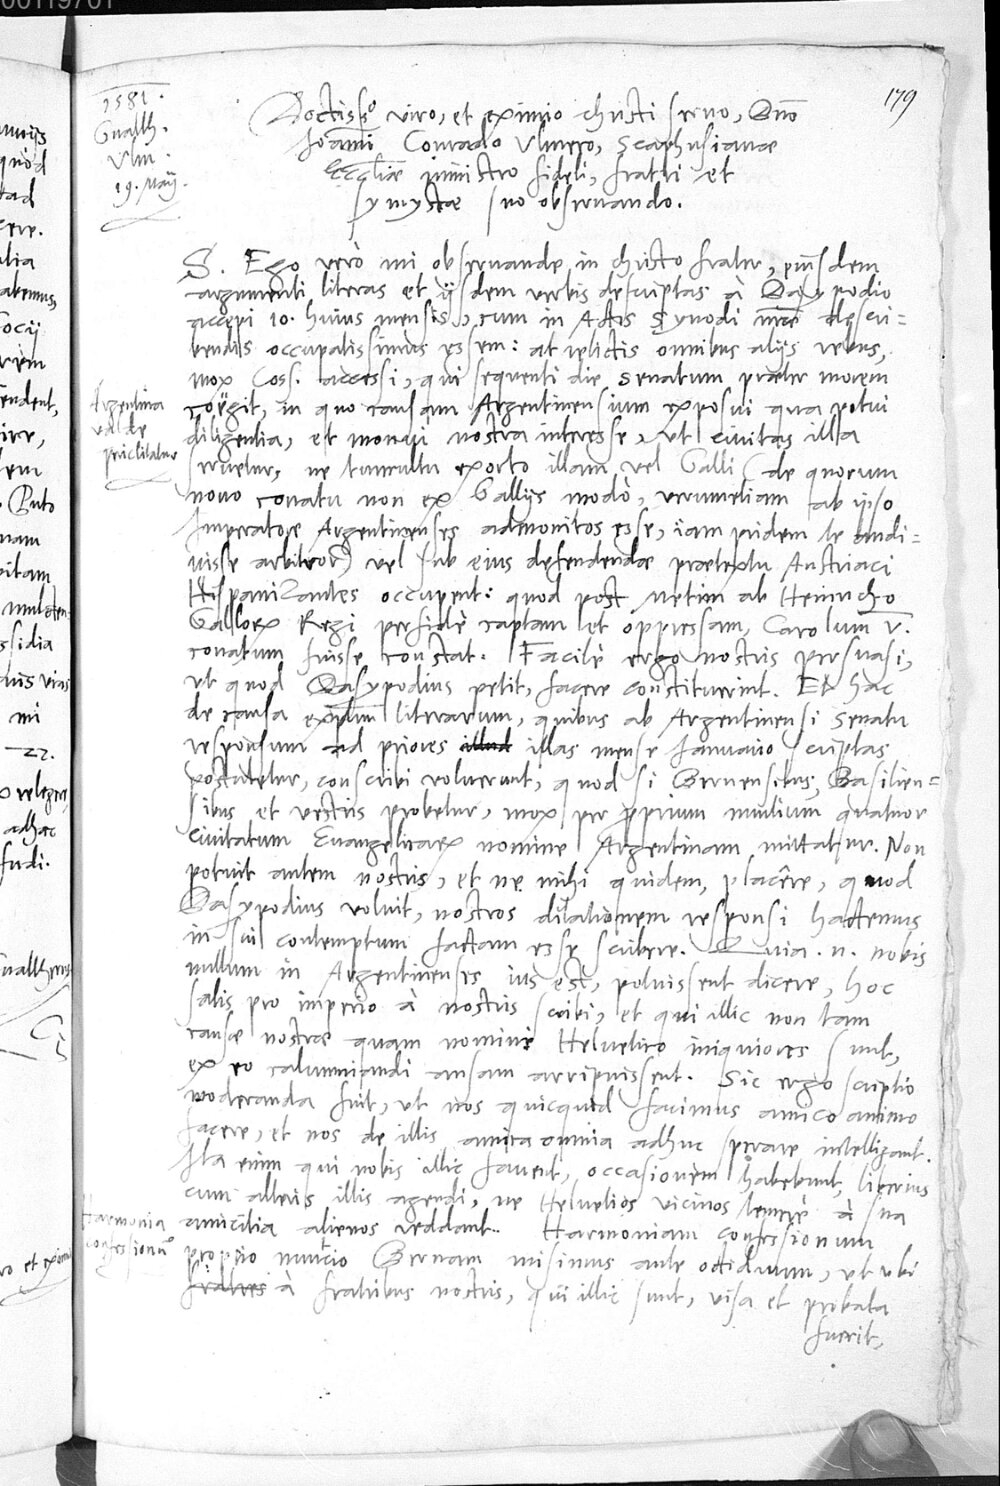 179
1581.
Gualth.
Ulm.
19. Maij.
Doctiss.o viro, et eximio Christi servo, Dno
Joanni Conrado Ulmero, Scaphusianae
Eccliae ministro fideli, fratri et
symystae suo observando.
S. Ego vero mi observande in Christo frater, eiusdem
argumenti literas et ijsdem verbis descriptas à Dasypodio
accepi 10. huius mensis, cum in Actis Synodi nrae descri=
bendis occupatissimus essem: at relictis omnibus alijs rebus,
mox Coss. accessi, qui sequenti die Senatum praeter morem
coëgit, in quo causam Argentinensium exposui qua potui
diligentia, et monui nostra interesse, ut civitas illa
servetur, ne tumultu exorto illam vel Galli (de quorum
novo conatu non ex Gallijs modò, verumetiam ab ipso
Imperatore Argentinenses admonitos esse, iam pridem te audi=
visse arbitror) vel sub eius defendendae praetextu Austriaci
Hispanizantes occupent: quod post Metim ab Heinricho
Gallorum Regi perfidè captam et oppressam, Carolum V.
conatum fuisse constat. Facilè ergo nostris persuasi,
ut quod Dasypodius petit, facere constituerint. Et hac
de causa explum literarum, quibus ab Argentinensi Senatu
responsum ad priores illud illas mense Januario scriptas
postuletur, conscribi voluerunt, quod si Bernensibus, Basilien=
sibus et vestris probetur, mox per pprium nuntium quatuor
Civitatum Evangelicarum nomine Argentinam mittatur. Non
potuit autem nostris, et ne mihi quidem, placêre, quod
Dasypodius voluit, nostros dilationem responsi hactenus
in sui contemptum factam esse scribere. Quia .n. nobis
nullum in Argentinenses ius est, potuissent dicere, hoc
satis pro imperio à nostris scribi, et qui illic non tam
causae nostrae quam nomini Helvetico iniquiores sunt,
ex eo calumniandi ansam arripuissent. Sic ergo scriptio
moderanda fuit, ut nos quicquid facimus amico animo
facere, et nos de illis amica omnia adhuc sperare intelligant.
Ita enim qui nobis illic favent, occasionem habebunt, liberius
cum alteris illis agendi, ne Helvetios vicinos temerè à sua
amicitia alienos reddant. Harmoniam confessionum
proprio nuncio Bernam misimus ante octiduum, ut ubi
fratres à fratribus nostris, qui illic sunt, visa et probata
fuerit,
Argentina
valde
periclitatur
Harmonia
confessionum